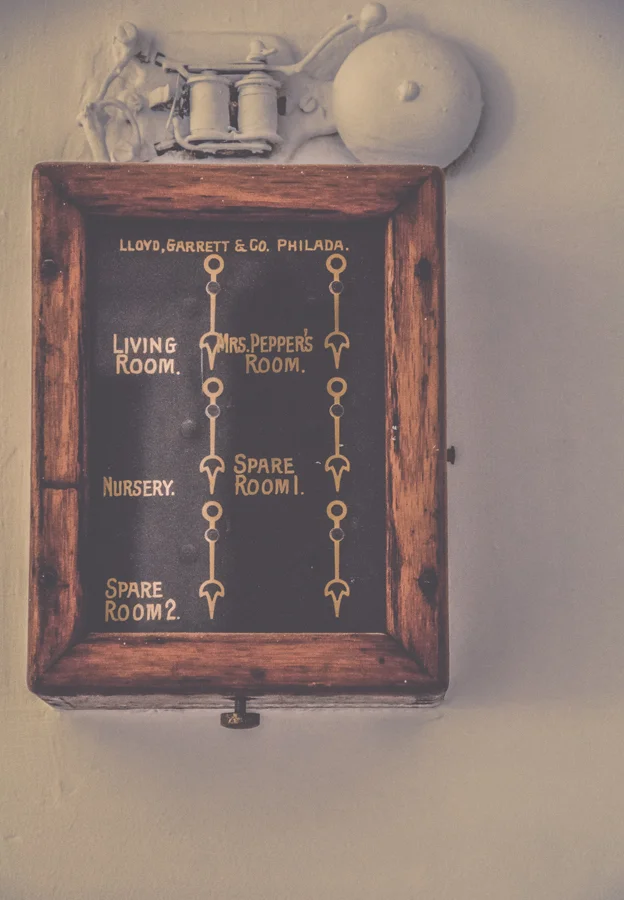 LLOYD, GARRETT & CO. PHILADA.
LIVING
ROOM.
MRS. PEPPER'S
ROOM.
NURSERY.
SPARE
ROOM 1.
SPARE
ROOM 2.